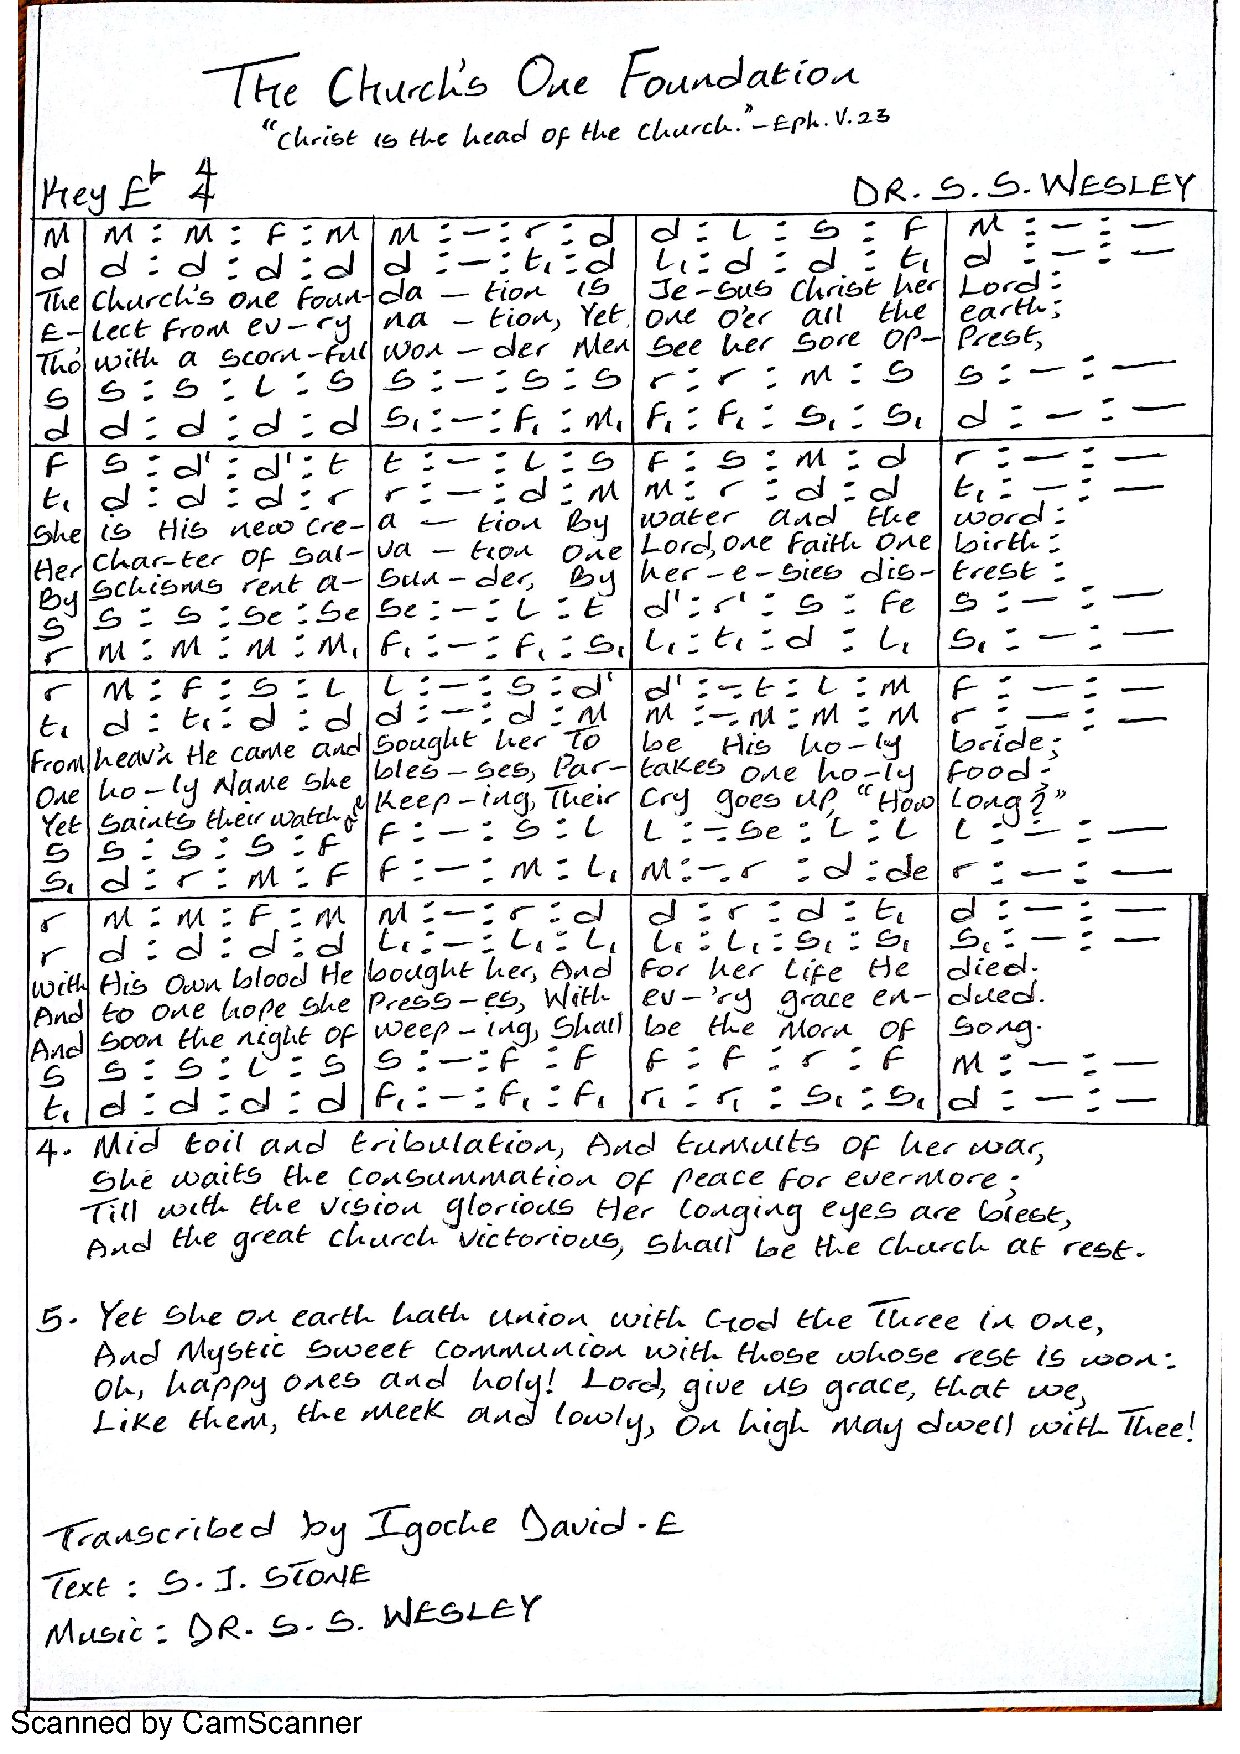 The Church's One Foundation
"Christ is the head of the Church."-Eph. V.23
Key E♭ 4/4 DR. S. S. WESLEY
M | M : M : F : M | M : — : r : d | d : L : S : F | M : — : —
d | d : d : d : d | d : — : t₁ : d | L₁ : d : d : t₁ | d : — : —
The | Church's one Foun- | da — tion is | Je-sus Christ her | Lord:
E- | Lect From ev-ry | na — tion, Yet | one o'er all the | earth;
Tho' | with a scorn-ful | won — der Men | see her sore op- | Prest,
S | S : S : L : S | S : — : S : S | r : r : M : S | S : — : —
d | d : d : d : d | S₁ : — : F₁ : M₁ | F₁ : F₁ : S₁ : S₁ | d : — : —
F | S : d' : d' : t | t : — : L : S | F : S : M : d | r : — : —
t₁ | d : d : d : r | r : — : d : M | M : r : d : d | t₁ : — : —
She | is His new cre- | a — tion By | water and the | word:
Her | Char-ter OF Sal- | va — tion One | Lord, one Faith One | birth:
By | schisms rent a- | sun-der, By | her-e-sies dis- | trest :
S | S : S : Se : Se | Se : — : L : t | d' : r' : S : Fe | S : — : —
r | M : M : M : M₁ | F₁ : — : F₁ : S₁ | L₁ : t₁ : d : L₁ | S₁ : — : —
r | M : F : S : L | L : — : S : d' | d' : -. t : L : M | F : — : —
t₁ | d : t₁ : d : d | d : — : d : M | M : -. M : M : M | r : — : —
From | heav'n He came and | Sought her To | be His ho-ly | bride;
One | ho-ly Name she | bles-ses, Par- | takes one ho-ly | Food:
Yet | Saints their watch are | Keep-ing, Their | Cry goes up, "How | Long?"
S | S : S : S : F | F : — : S : L | L : -. Se : L : L | L : — : —
S₁ | d : r : M : F | F : — : M : L₁ | M : -. r : d : de | r : — : —
r | M : M : F : M | M : — : r : d | d : r : d : t₁ | d : — : —
r | d : d : d : d | L₁ : — : L₁ : L₁ | L₁ : L₁ : S₁ : S₁ | S₁ : — : —
With | His Own blood He | bought her, And | For her Life He | died.
And | to one hope she | Press-es, With | ev-'ry grace en- | dued.
And | Soon the night of | weep-ing, Shall | be the Morn OF | Song.
S | S : S : L : S | S : — : F : F | F : F : r : F | M : — : —
t₁ | d : d : d : d | F₁ : — : F₁ : F₁ | r₁ : r₁ : S₁ : S₁ | d : — : —
4. Mid toil and tribulation, And tumults of her war,
She waits the Consummation of peace For evermore;
Till with the vision glorious Her Longing eyes are blest,
And the great Church Victorious, Shall be the Church at rest.
5. Yet She on earth hath union with God the Three in One,
And Mystic Sweet Communion with those whose rest is won:
Oh, happy ones and holy! Lord, give us grace, that we,
Like them, the meek and lowly, On high May dwell with Thee!
Transcribed by Igoche David. E
Text : S. J. STONE
Music : DR. S. S. WESLEY
Scanned by CamScanner